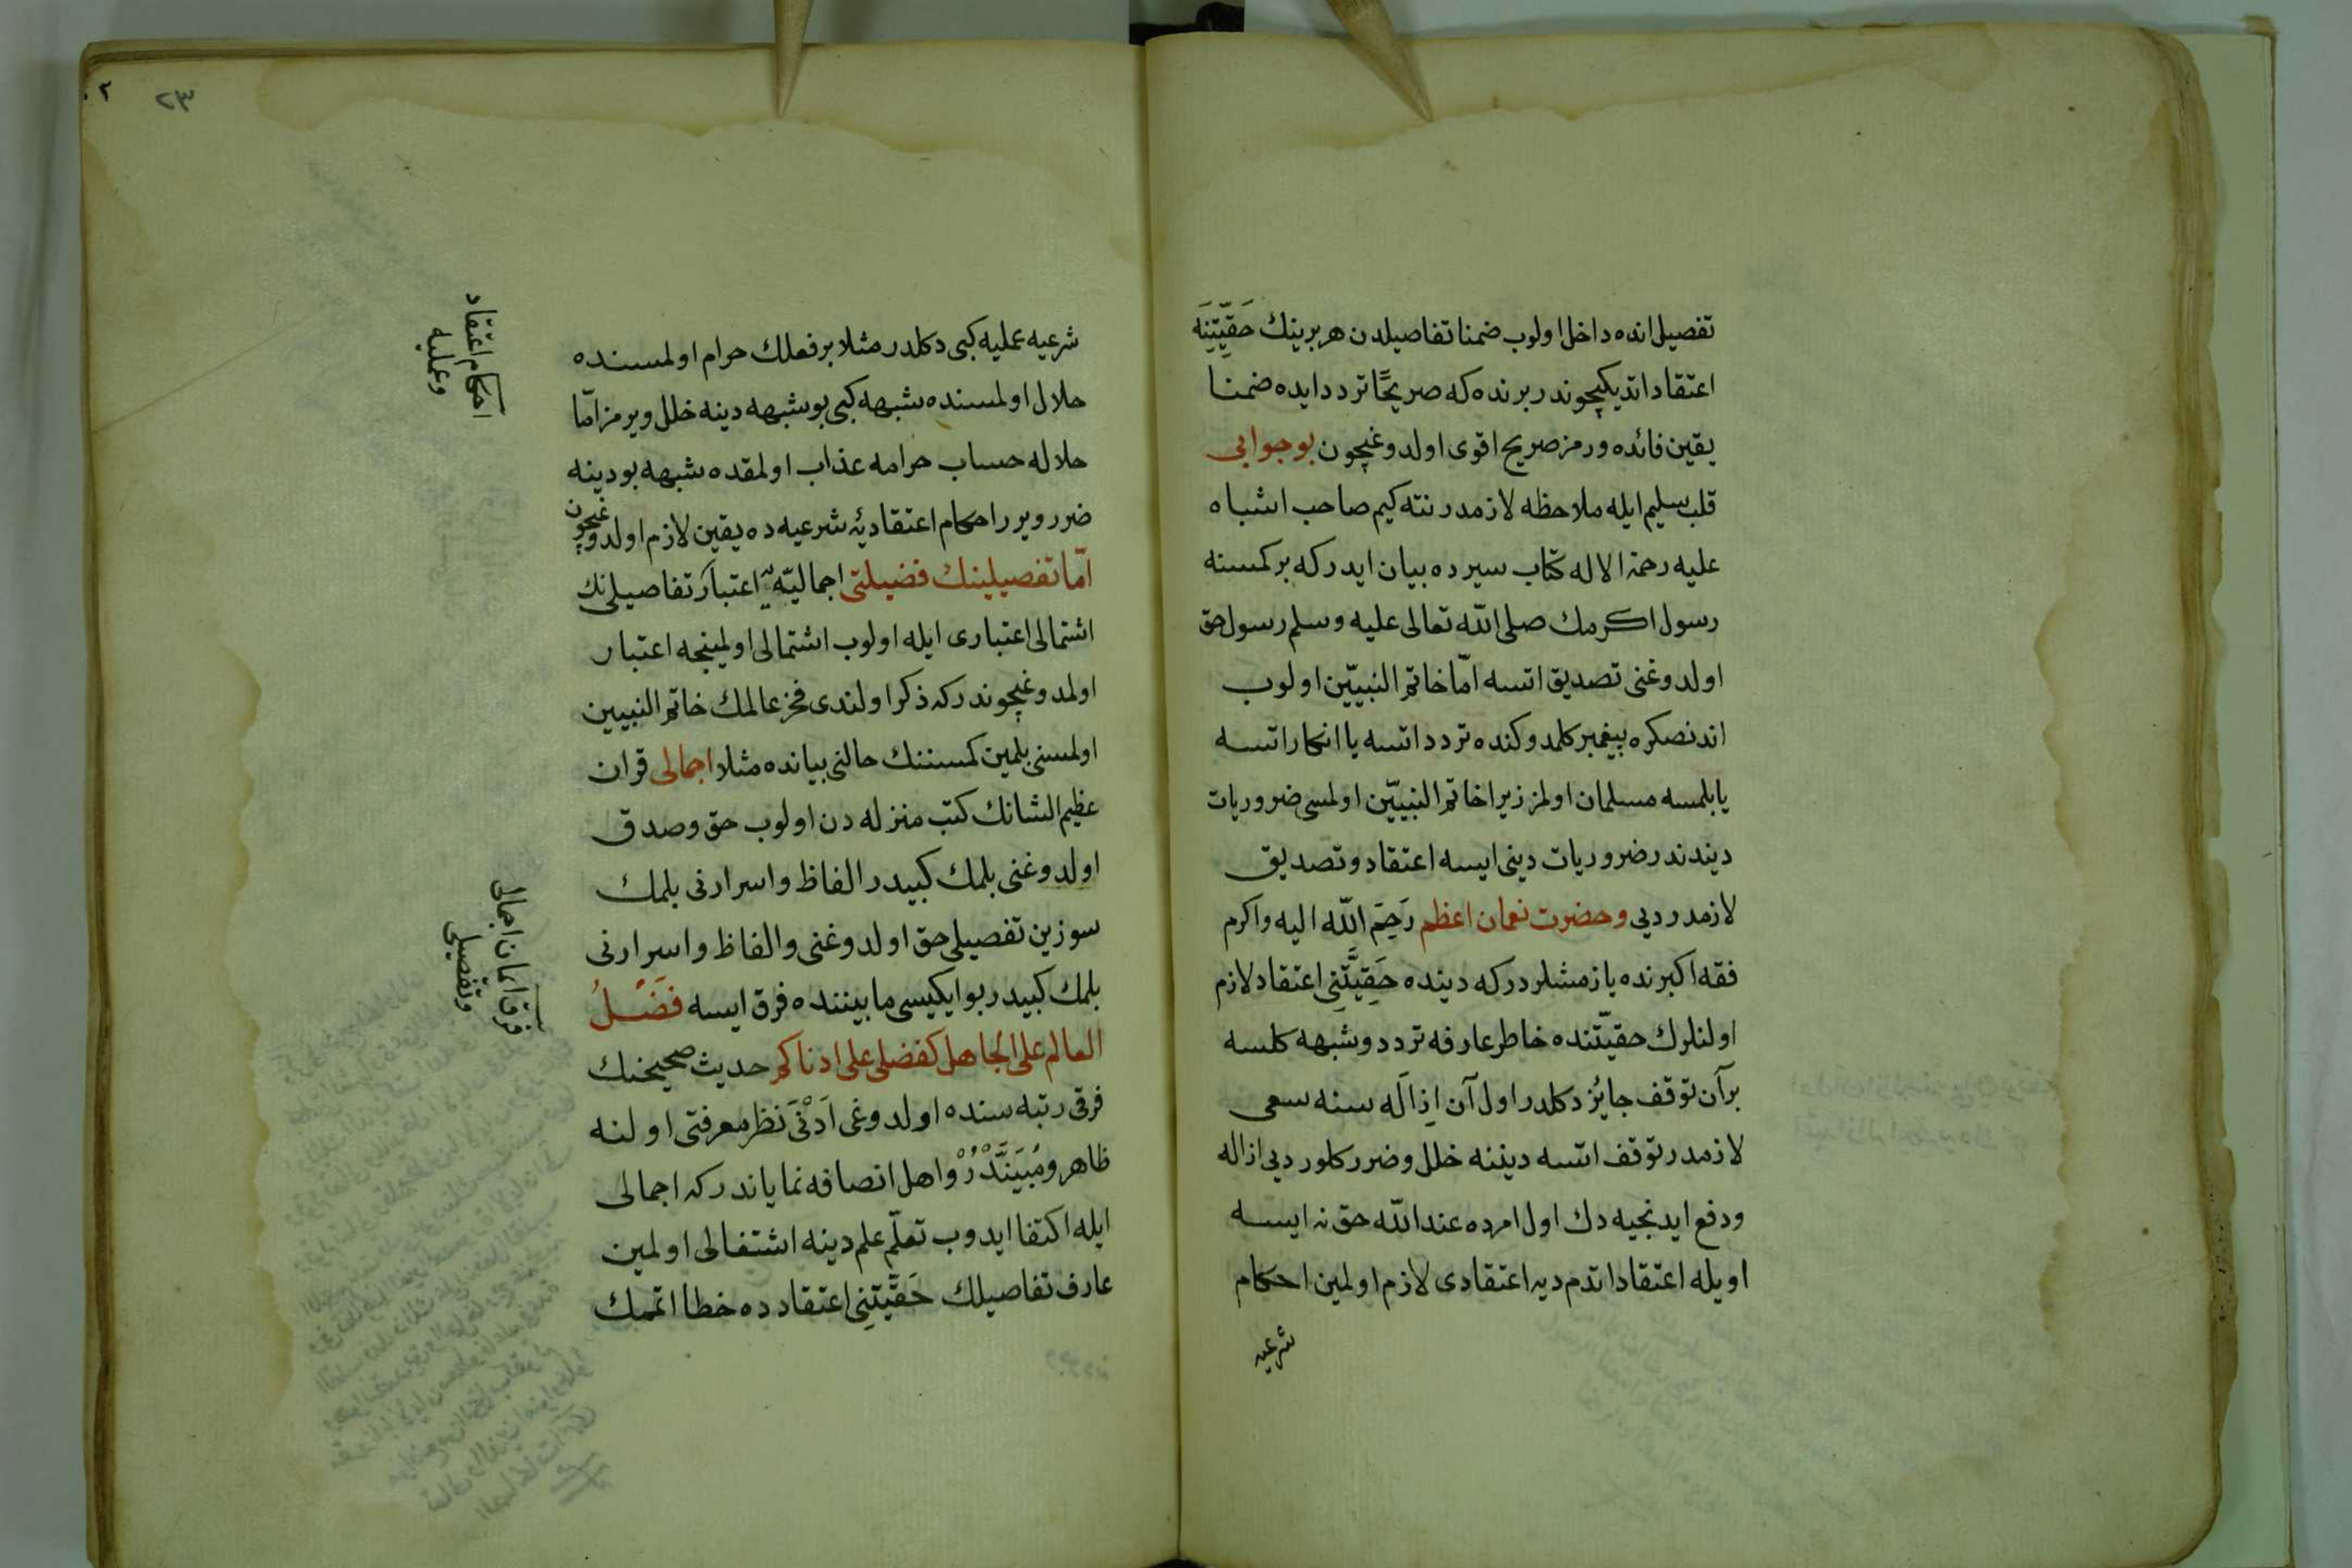 تفصیل انده داخل اولوب ضمنا تفاصیلدن هر برینك حَقِّیَّتِنَه
اعتقاد اتدیكیچوندر برنده كه صریحًا تردد ایده ضمنا
یقین فائده ورمز صریح اقوی اولدوغیچون بو جوابی
قلب سلیم ایله ملاحظه لازمدر نته كیم صاحب اشباه
علیه رحمة الاله كتاب سیرده بیان ایدر كه بر كمسنه
رسول اكرمك صلی الله تعالی علیه وسلم رسول حق
اولدوغنی تصدیق اتسه امّا خاتم النبیّین اولوب
اندنصكره پیغمبر كلمدوكنده تردد اتسه یا انكار اتسه
یا بلمسه مسلمان اولمز زیرا خاتم النبیّین اولمسی ضروریات
دیندندر ضروریات دینی ایسه اعتقاد و تصدیق
لازمدر دیی وحضرت نعمان اعظم رَحِمَ الله الیه واكرم
فقه اكبرنده یازمشلردر كه دینده حَقِیَّتَنِی اعتقاد لازم
اولنلرك حقیّتنده خاطر عارفه تردد وشبهه كلسه
برآن توقف جایُز دكلدر اول آن اِزَالَه سنه سعی
لازمدر توقف اتسه دیننه خلل وضرر كلور دیی ازاله
ودفع ایدنجیه دك اول امرده عندالله حق نه ایسه
اویله اعتقاد اتدم دیه اعتقادی لازم اولمین احكام
شرعیه
٢٣
شرعیه عملیه كبی دكلدر مثلا بر فعلك حرام اولمسنده
حلال اولمسنده شبهه كبی بو شبهه دینه خلل ویرمز امّا
حلاله حساب حرامه عذاب اولمقده شبهه بو دینه
ضرر ویرر احكام اعتقادیّهٔ شرعیه ده یقین لازم اولدوغیچون
امّا تفصیلینك فضیلتی اجمالیّه اعتبار تفاصیلنك
اشتمالی اعتباری ایله اولوب اشتمالی اولمینجه اعتبار
اولمدوغیچوندر كه ذكر اولندی فخر عالمك خاتم النبیین
اولمسنی بلمین كمسننك حالنی بیانده مثلا اجمالی قران
عظیم الشانك كتب منزله دن اولوب حق وصدق
اولدوغنی بلمك كبیدر الفاظ واسرارنی بلمك
سوزین تفصیلی حق اولدوغنی والفاظ واسرارنی
بلمك كبیدر بو ایكیسی مابیننده فرق ایسه فَضْلُ
العالم علی الجاهل كفضلی علی ادناكم حدیث صحیحنك
فرقی رتبه سنده اولدوغی اَدْنَی نظر معرفتی اولنه
ظاهر ومُبَیَّنْدُرْ واهل انصافه نمایاندر كه اجمالی
ایله اكتفا ایدوب تعلّم علم دینه اشتغالی اولمین
عارف تفاصیلك حَقِّیَّتِنِی اعتقادده خطا اتمك
احكام اعتقاد
وعملیه
فرق ایمان اجمالی
وتفصیلی